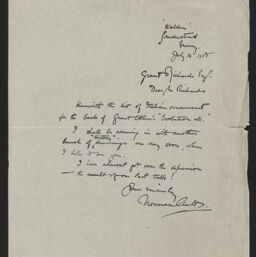 'Walden'
Sandhurst
Surrey
July 14th
Grant Richards Esq.
Dear Mr Richards
Herewith the bit of Italian ornament
for the back of Grant Allen's "Evolution etc."
I shall be coming in with another
bunch of drawings one day soon when
I hear from you.
I have almost got over the depression
— the result of our last talk!
Yours sincerely
Norman